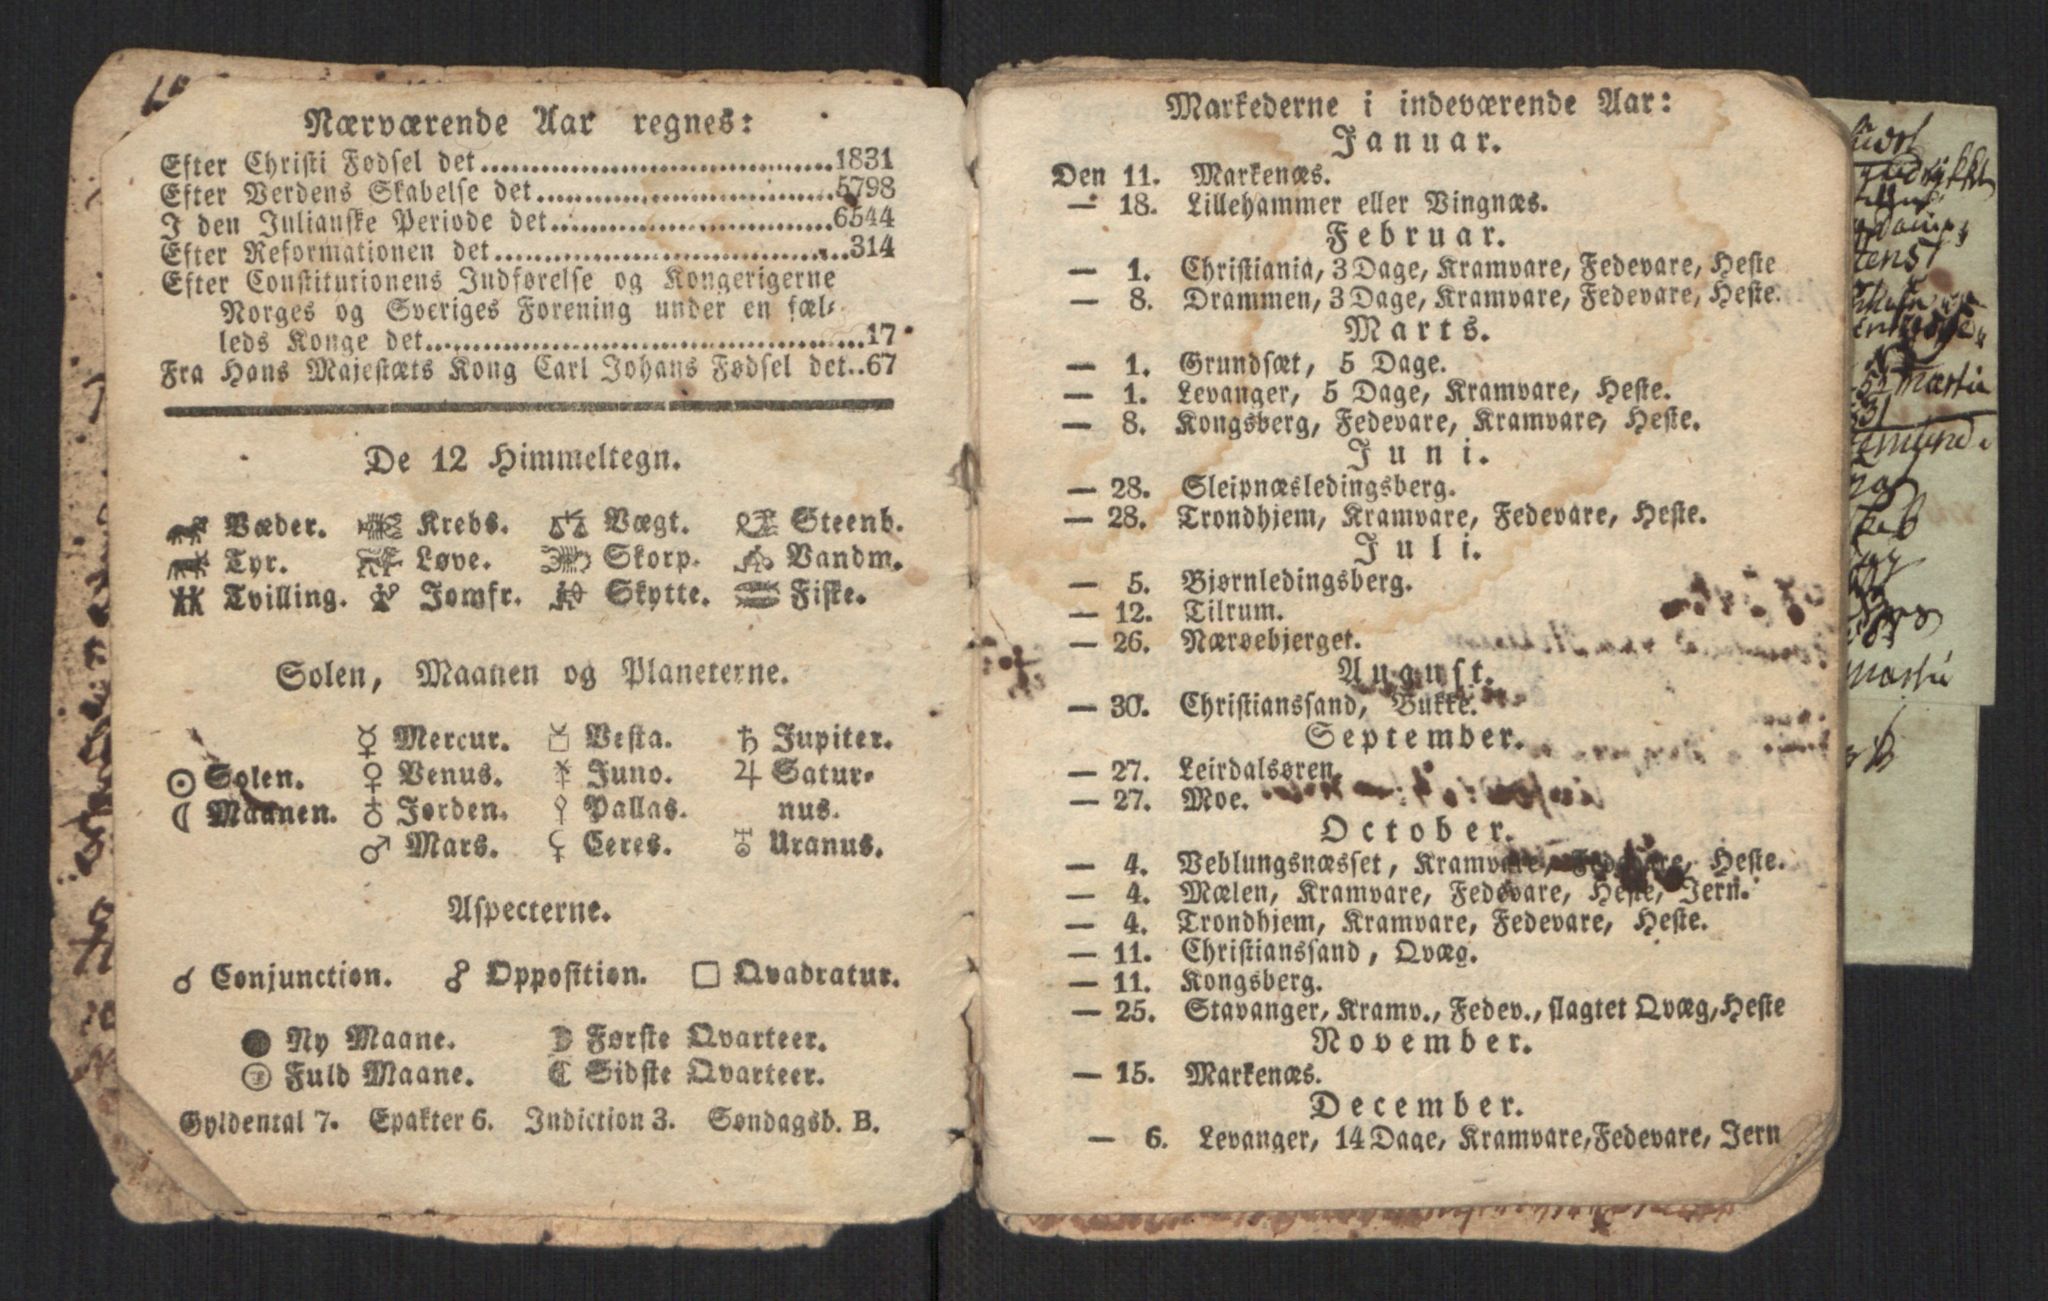 Nærværende Aar regnes:
Efter Christi Fødsel det................................1831
Efter Verdens Skabelse det...........................5798
I den Julianske Periode det..........................6544
Efter Reformationen det................................314
Efter Constitutionens Indførelse og Kongerigerne
Norges og Sveriges Forening under en fæl-
leds Konge det..........................................17
Fra Hans Majestæts Kong Carl Johans Fødsel det..67
De 12 Himmeltegn.
Væder. Krebs. Vægt. Steenb.
Tyr. Løve. Skorp. Vandm.
Tvilling. Jomfr. Skytte. Fiske.
Solen, Maanen og Planeterne.
☿ Mercur. Vesta. ♄ Jupiter.
☉ Solen. ♀ Venus. Juno. ♃ Satur-
☾ Maanen. ♁ Jorden. Pallas. nus.
♂ Mars. Ceres. Uranus.
Aspecterne.
☌ Conjunction. ☍ Opposition. □ Qvadratur.
Ny Maane. Første Qvarteer.
Fuld Maane. Sidste Qvarteer.
Gyldental 7. Epakter 6. Indiction 3. Søndagsb. B.
Markederne i indeværende Aar:
Januar.
Den 11. Markenæs.
— 18. Lillehammer eller Vingnæs.
Februar.
— 1. Christiania, 3 Dage, Kramvare, Fedevare, Heste
— 8. Drammen, 3 Dage, Kramvare, Fedevare, Heste.
Marts.
— 1. Grundsæt, 5 Dage.
— 1. Levanger, 5 Dage, Kramvare, Heste.
— 8. Kongsberg, Fedevare, Kramvare, Heste.
Juni.
— 28. Sleipnæsledingsberg.
— 28. Trondhjem, Kramvare, Fedevare, Heste.
Juli.
— 5. Bjørnledingsberg.
— 12. Tilrum.
— 26. Nærøebjerget.
August.
— 30. Christianssand, Bukke.
September.
— 27. Leirdalsøren.
— 27. Moe.
October.
— 4. Veblungsnæsset, Kramvare, Fedevare, Heste.
— 4. Mælen, Kramvare, Fedevare, Heste, Jern.
— 4. Trondhjem, Kramvare, Fedevare, Heste.
— 11. Christianssand, Qvæg.
— 11. Kongsberg.
— 25. Stavanger, Kramv., Fedev., slagtet Qvæg, Heste
November.
— 15. Markenæs.
December.
— 6. Levanger, 14 Dage, Kramvare, Fedevare, Jern